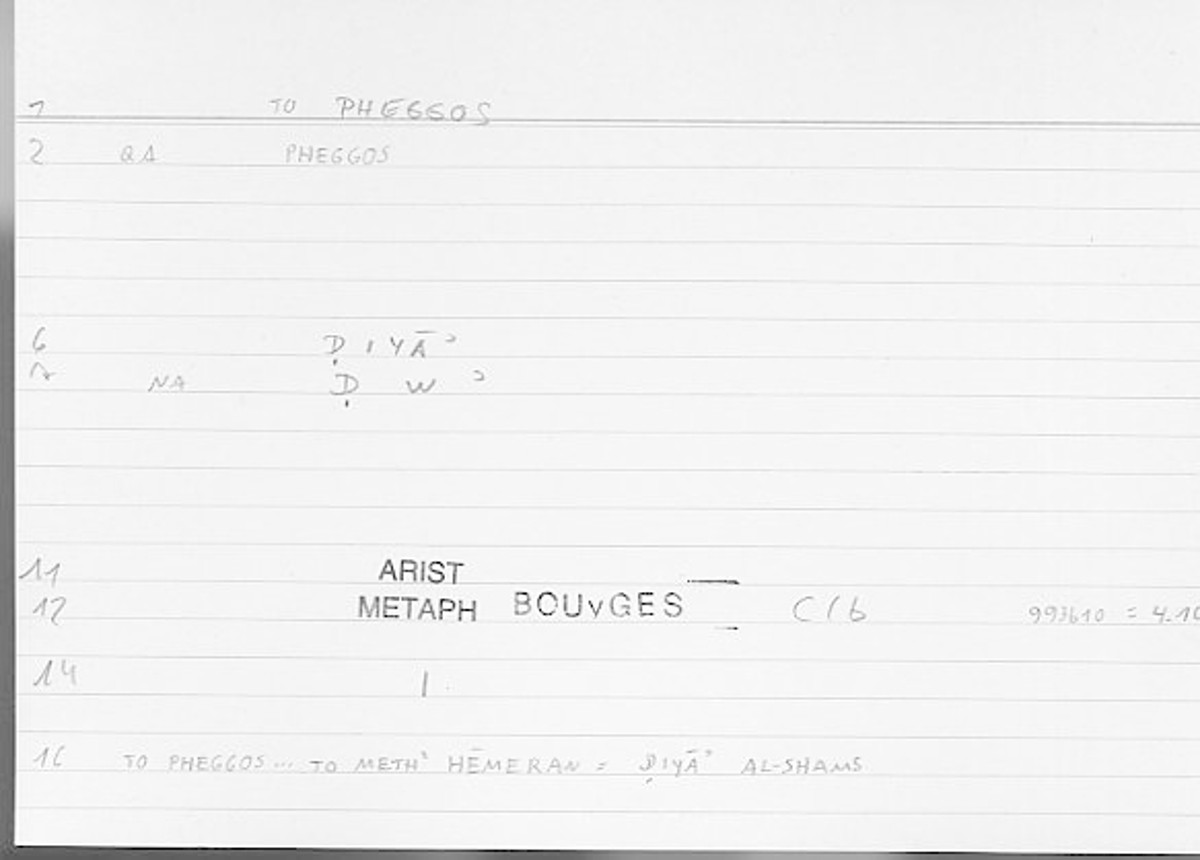 1 TO PHEGGOS
2 QA PHEGGOS
6 ḌIYĀʾ
7 NA Ḍ W ʾ
11 ARIST
12 METAPH BOUvGES C16 993b10 = 4.10
14 1
16 TO PHEGGOS... TO METH' HĒMERAN = ḌIYĀʾ AL-SHAMS